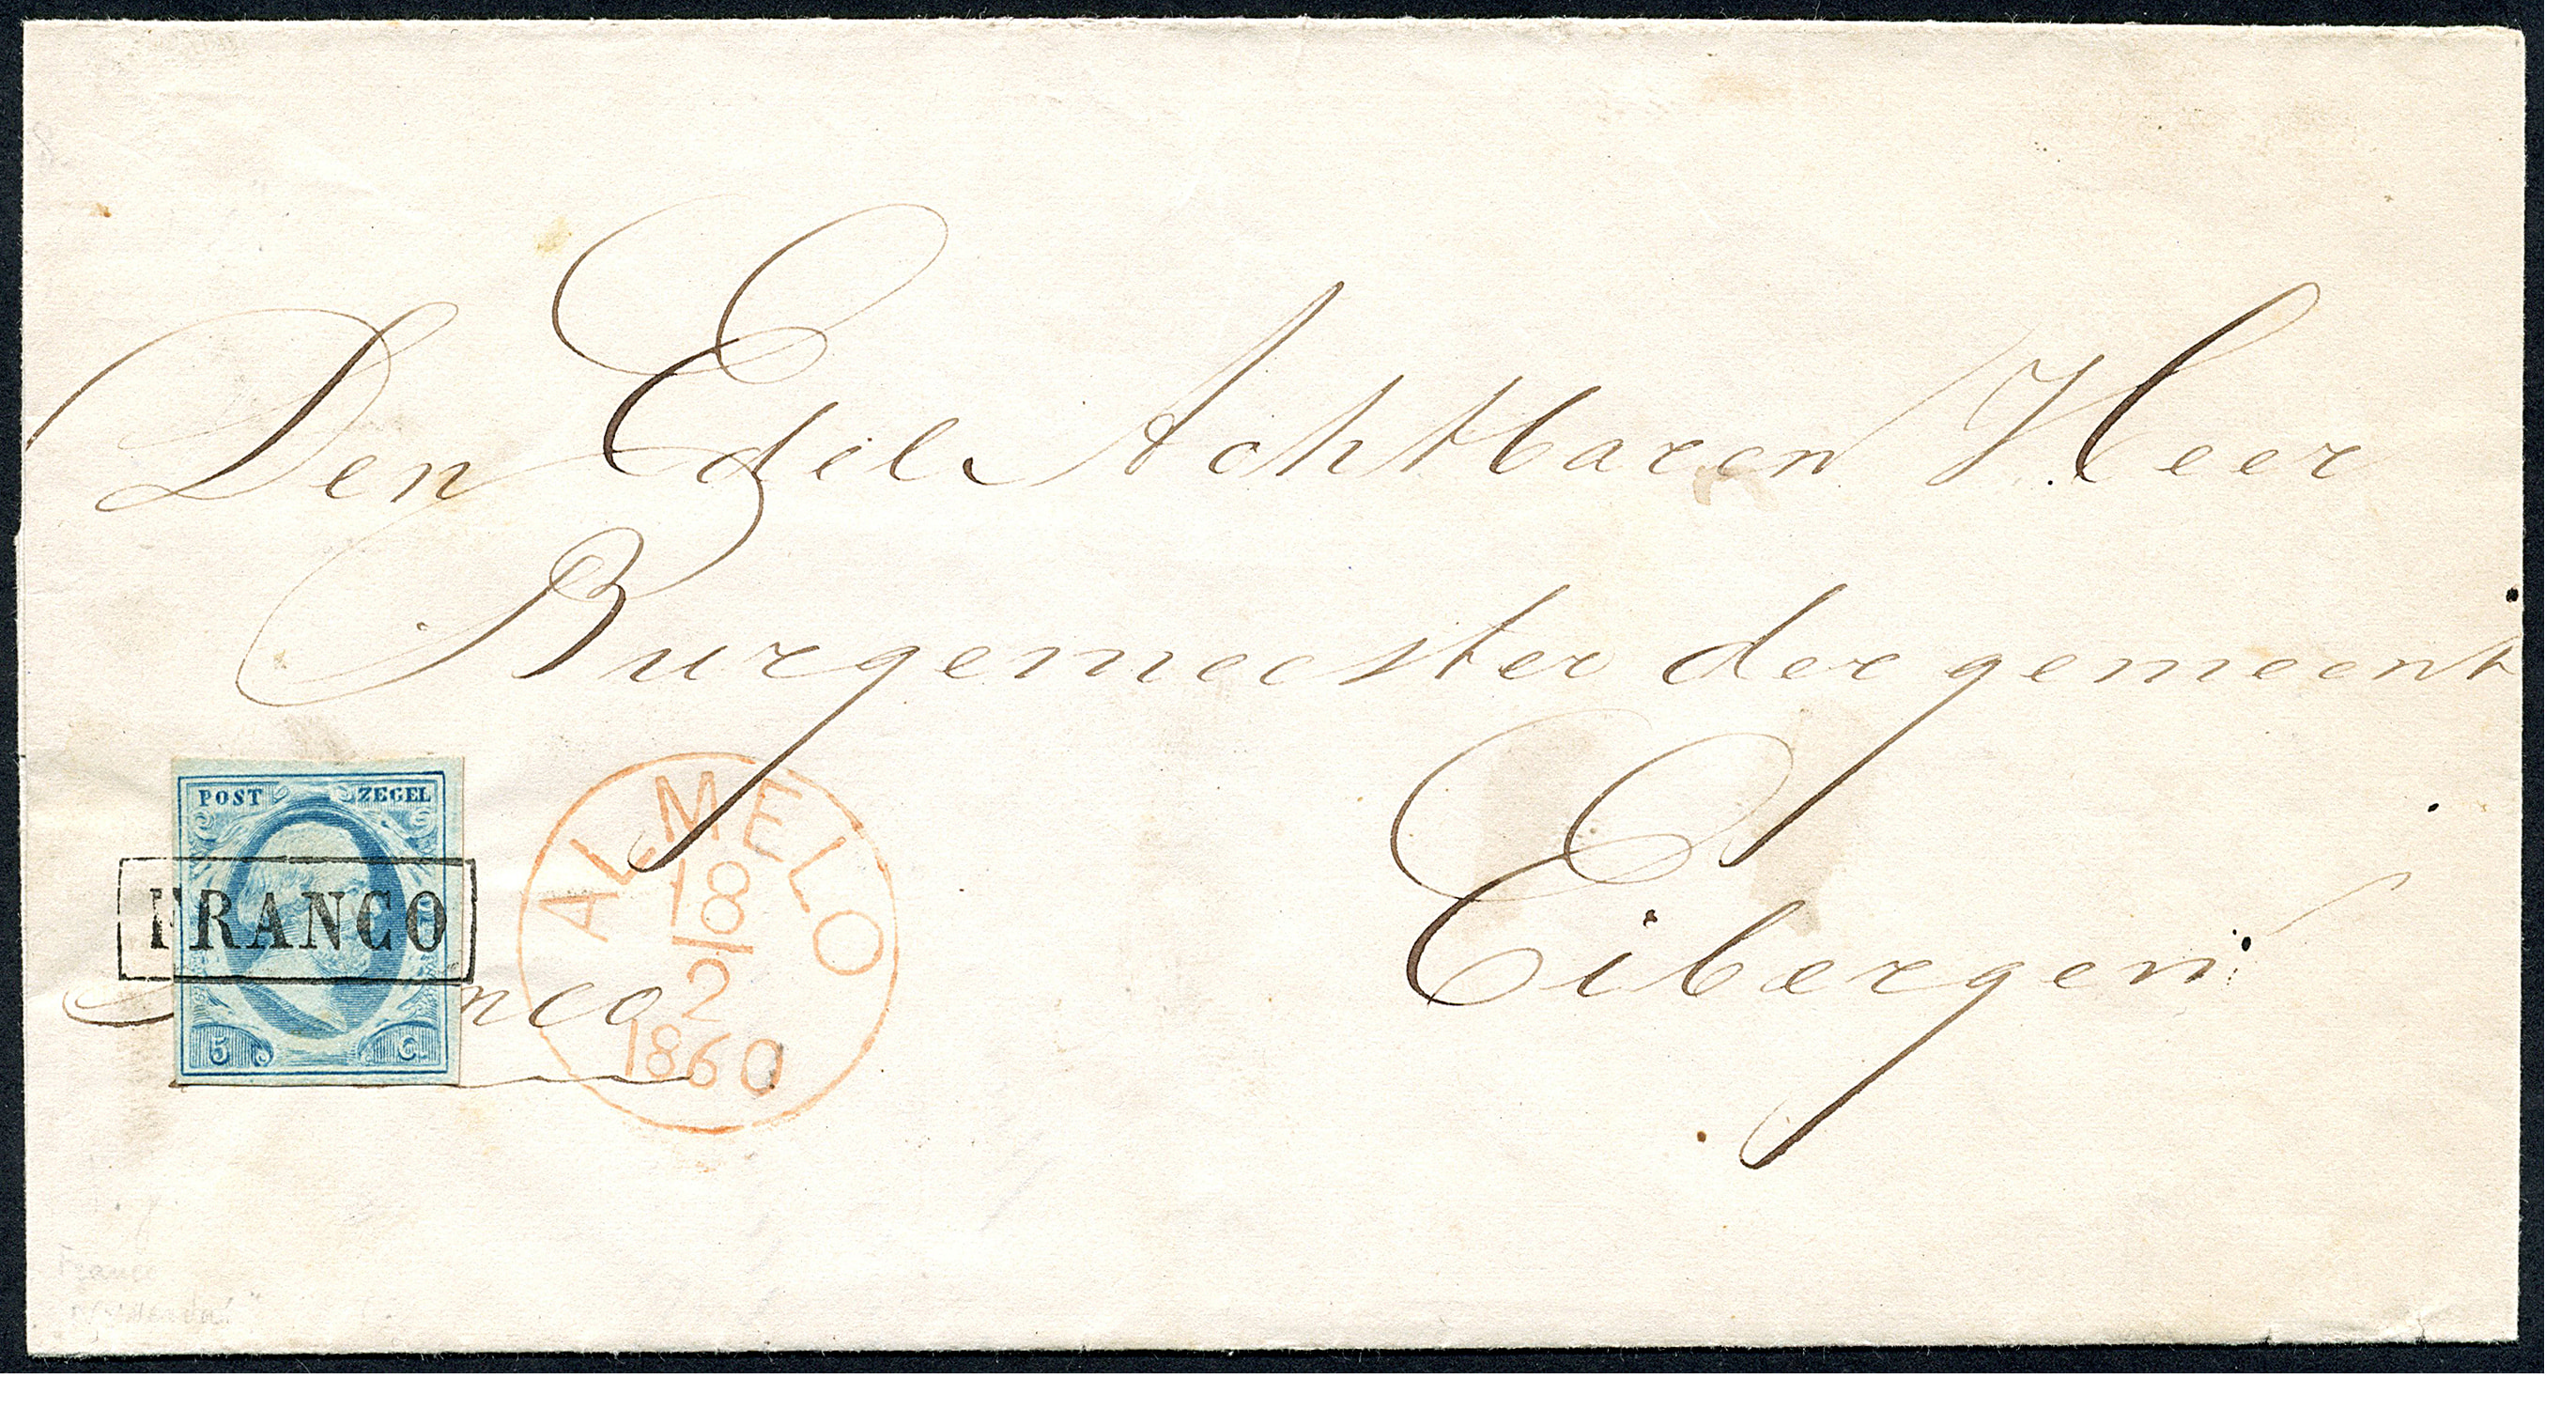 Den Edele Achtbaren Heer
Burgemeester der gemeent
Eibergen
POST ZEGEL
FRANCO
nco
5 Ct
ALMELO
18
2
1860
Franco